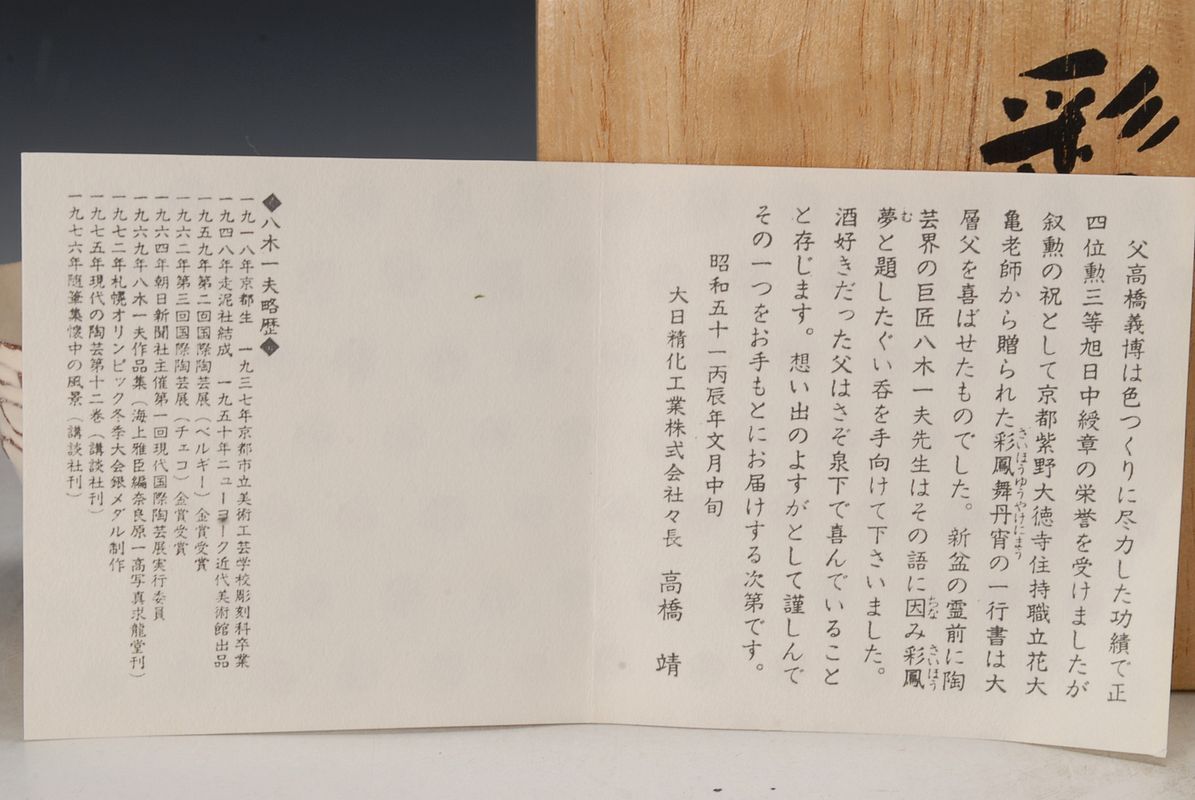 彩
父高橋義博は色つくりに尽力した功績で正
四位勲三等旭日中綬章の栄誉を受けましたが
叙勲の祝として京都紫野大徳寺住持職立花大
亀老師から贈られた彩鳳舞丹宵の一行書は大
さいほうゆうやけにまう
層父を喜ばせたものでした。新盆の霊前に陶
芸界の巨匠八木一夫先生はその語に因み彩鳳
ちな
さいほう
夢と題したぐい呑を手向けて下さいました。
む
酒好きだった父はさぞ泉下で喜んでいること
と存じます。想い出のよすがとして謹しんで
その一つをお手もとにお届けする次第です。
昭和五十一丙辰年文月中旬
大日精化工業株式会社々長 高橋 靖
◆八木一夫略歴◆
一九一八年京都生 一九三七年京都市立美術工芸学校彫刻科卒業
一九四八年走泥社結成 一九五十年ニューヨーク近代美術館出品
一九五九年第二回国際陶芸展（ベルギー）金賞受賞
一九六二年第三回国際陶芸展（チェコ）金賞受賞
一九六四年朝日新聞社主催第一回現代国際陶芸展実行委員
一九六九年八木一夫作品集（海上雅臣編奈良原一高写真求龍堂刊）
一九七二年札幌オリンピック冬季大会銀メダル制作
一九七五年現代の陶芸第十二巻（講談社刊）
一九七六年随筆集懐中の風景（講談社刊）